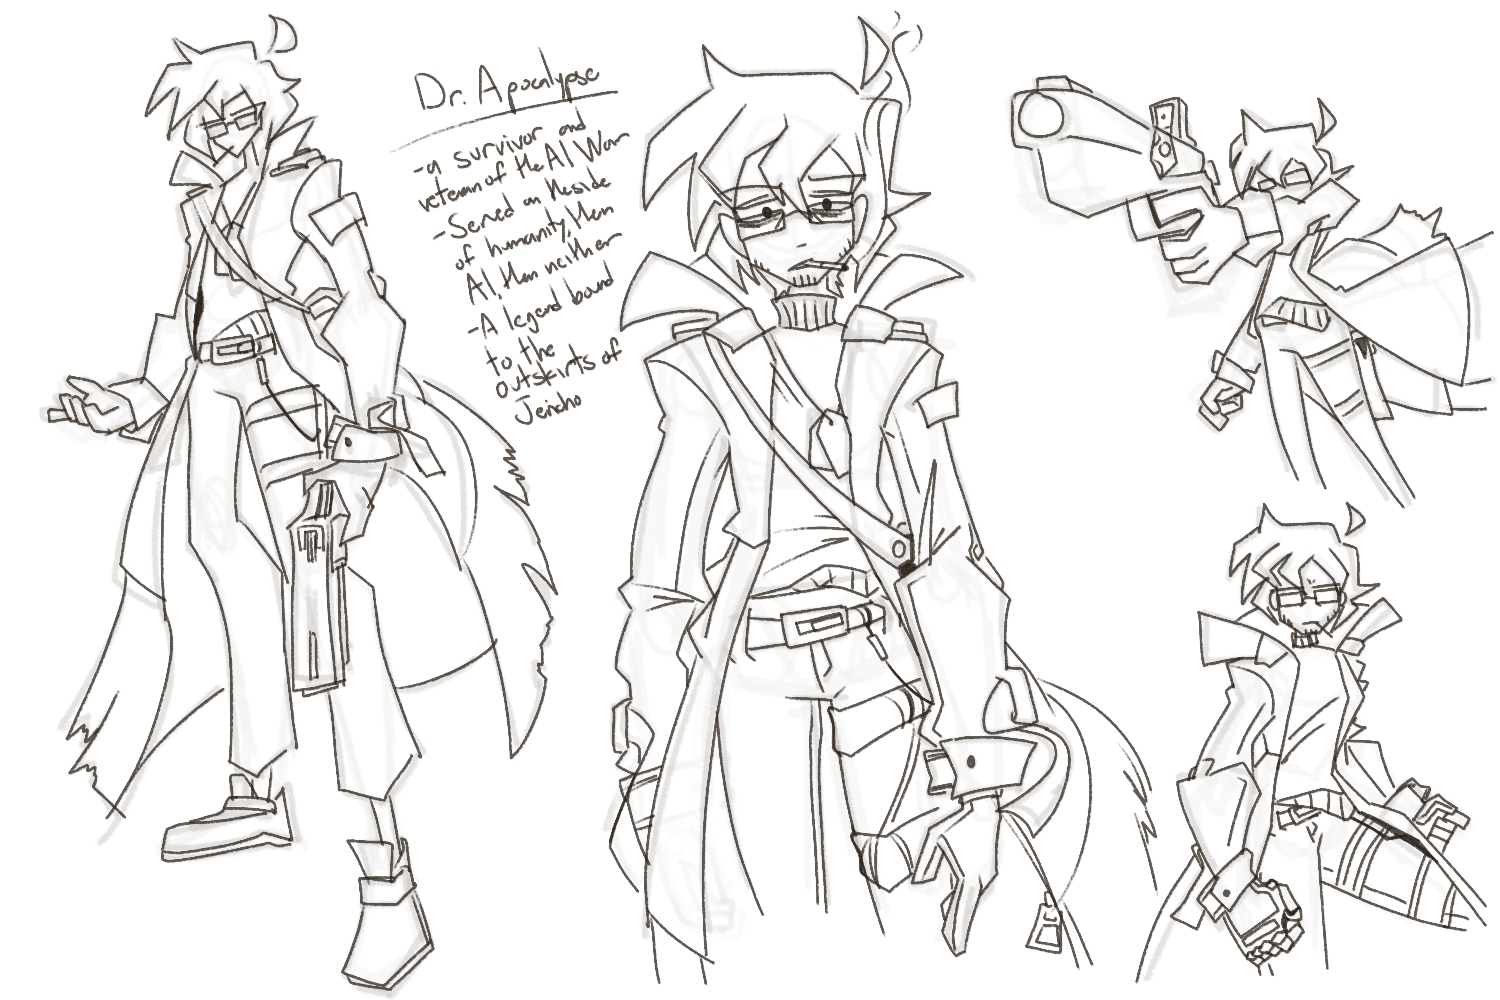 Dr. Apocalypse
-a survivor and
veteran of the AI War
-Served on Neside
of humanity, then
AI, then neither
-A legend bound
to the
outskirts of
Jericho